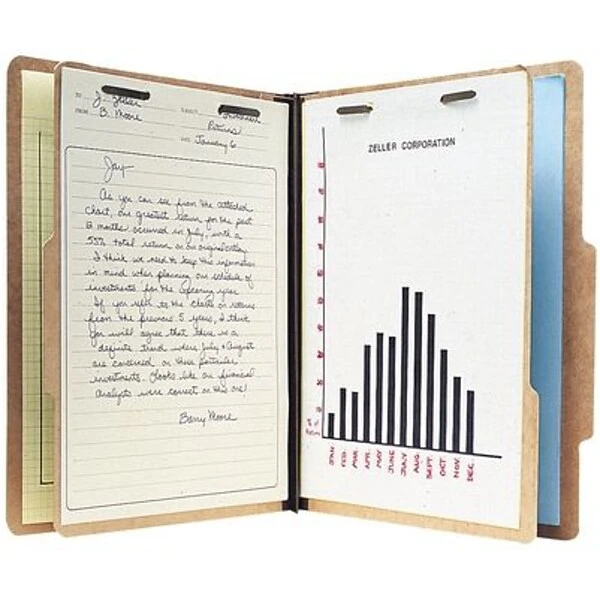 TO J. Zeller
FROM B. Moore
SUBJECT Investment
Returns
DATE January 6
Jay-
As you can see from the attached
chart, our greatest return for the past
12 months occurred in July, with a
55% total return on our original money.
I think we need to keep this information
in mind when planning our schedule of
investments for the upcoming year.
If you refer to the charts on returns
from the previous 5 years, I think
you will agree that there is a
definite trend where July & August
are concerned on these particular
investments. Looks like our financial
analysts were correct on this one!
Barry Moore
ZELLER CORPORATION
JAN
FEB.
MAR.
APR.
MAY
JUNE
JULY
AUG.
SEPT.
OCT.
NOV.
DEC.